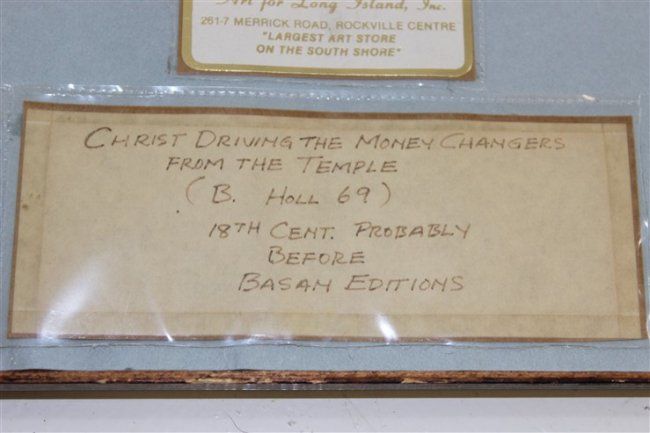 Art for Long Island, Inc.
261-7 MERRICK ROAD, ROCKVILLE CENTRE
"LARGEST ART STORE
ON THE SOUTH SHORE"
CHRIST DRIVING THE MONEY CHANGERS
FROM THE TEMPLE
(B. HOLL 69)
18TH CENT. PROBABLY
BEFORE
BASAN EDITIONS